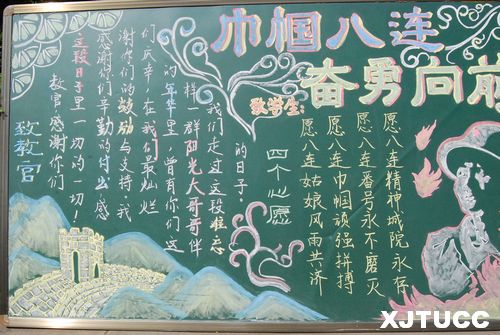 巾帼八连
奋勇向前
致教官
教官感谢你们
这段日子里一切的一切!
感谢你们辛勤的付出.感
谢你们的鼓励与支持.我
们庆幸,在我们最灿烂
的年华里,曾有你们这
样一群阳光大哥哥伴
我们走过这段难忘
的日子.
致学生:
四个心愿
愿八连姑娘风雨共济
愿八连巾帼顽强拼搏
愿八连番号永不磨灭
愿八连精神城院永存
XJTUCC